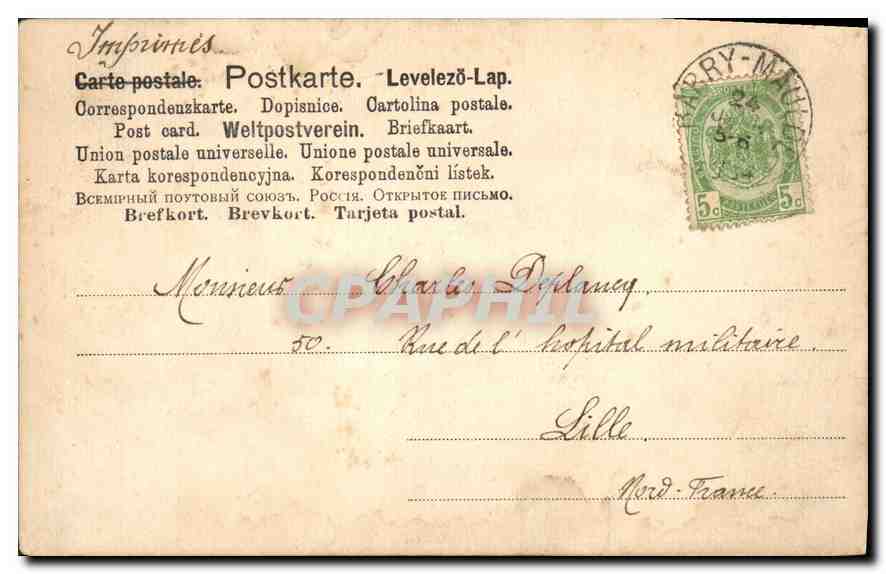 Imprimés
Carte postale. Postkarte. Levelezö-Lap.
Correspondenzkarte. Dopisnice. Cartolina postale.
Post card. Weltpostverein. Briefkaart.
Union postale universelle. Unione postale universale.
Karta korespondencyjna. Korespondenčni lístek.
Всемірный почтовый союзъ. Россія. Открытое письмо.
Brefkort. Brevkort. Tarjeta postal.
BARRY-MAULDE
24
5c 5c
Monsieur Charles Deplancq.
50. Rue de l' hopital militaire.
Lille.
Nord-France.
CPAPHIL